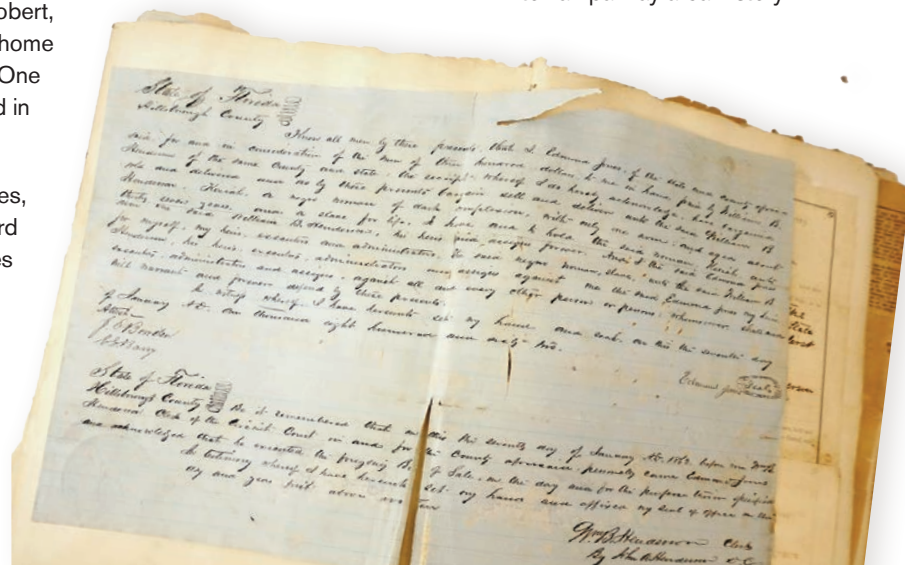 obert,
home
One
d in
es,
rd
es
State of Florida
Hillsborough County
Know all men by these presents, that I Edmund Jones, of the state and county afore
said for and in consideration of the sum of three hundred dollars, to me in hand paid by William B.
Henderson of the same County and state, the receipt whereof I do hereby acknowledge, have bargained
sold and delivered and do by these presents bargain sell and deliver unto the said William B
Henderson, Keziah, a negro woman of dark complexion, with only one arm, and aged about
thirty seven years and a slave for life, to have and to hold the said woman, Keziah unto
him the said William B. Henderson, his heirs and assigns forever. And I the said Edmund Jones
for myself, my heirs executors and administrators the said negro woman, slave, unto the said William B
Henderson, his heirs, executors, administrators and assigns against me the said Edmund Jones my heirs
executors, administrators and assigns, against all and every other person or persons whomsoever shall and
will warrant and forever defend by these presents.
In witness whereof I have hereunto set my hand and seal, on this the seventh day
of January A.D. one thousand eight hundred and sixty two.
Attest
Edmund Jones Seal
State of Florida
Hillsborough County Be it remembered that on this the seventh day of January AD. 1862 before me
Henderson Clerk of the Circuit Court in and for the County aforesaid personally came Edmund Jones
and acknowledged that he executed the foregoing Bill of Sale, on the day and for the purpose therein specified
In testimony whereof I have hereunto set my hand and affixed my seal of office on this
day and year first above written
Wm B. Henderson Clerk
By John A Henderson